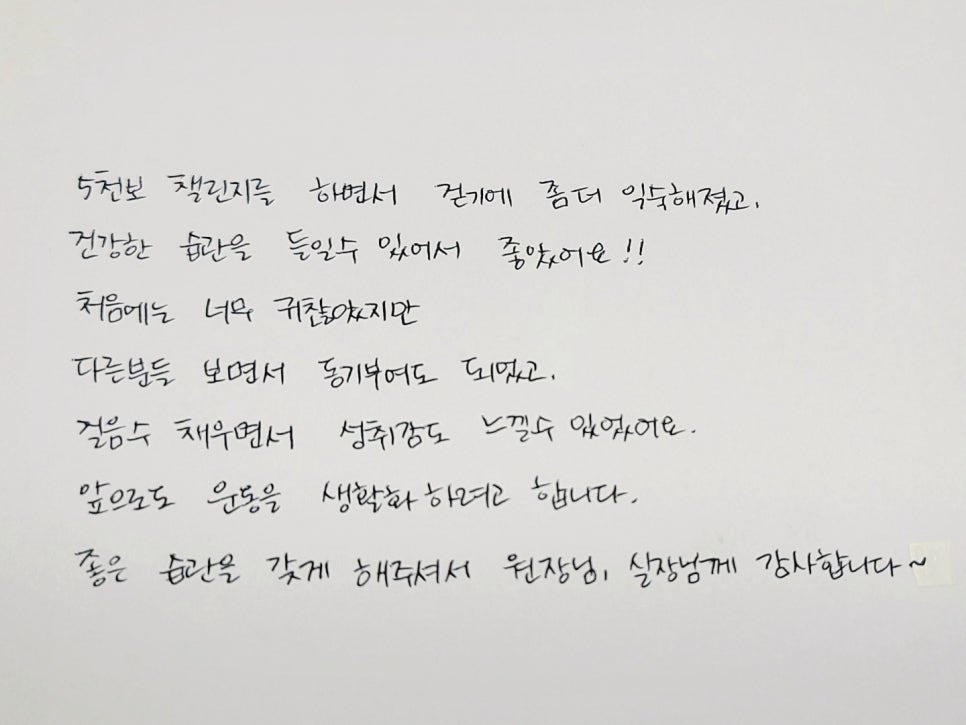 5천보 챌린지를 하면서 걷기에 좀더 익숙해졌고,
건강한 습관을 들일수 있어서 좋았어요!!
처음에는 너무 귀찮았지만
다른분들 보면서 동기부여도 되었고,
걸음수 채우면서 성취감도 느낄수 있었어요.
앞으로도 운동을 생활화하려고 합니다.
좋은 습관을 갖게 해주셔서 원장님, 실장님께 감사합니다~